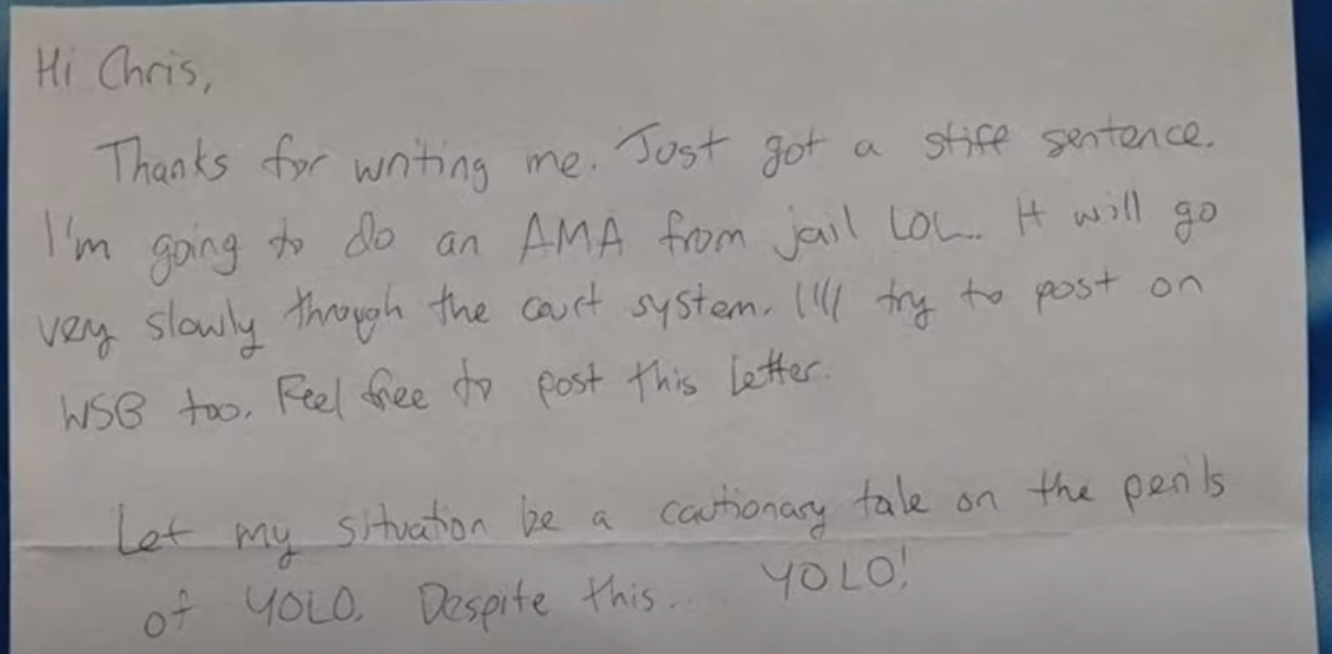 Hi Chris,
Thanks for writing me. Just got a stiff sentence.
I'm going to do an AMA from jail LOL. It will go
very slowly through the court system. I'll try to post on
WSB too. Feel free to post this letter.
Let my situation be a cautionary tale on the perils
of YOLO. Despite this.. YOLO!